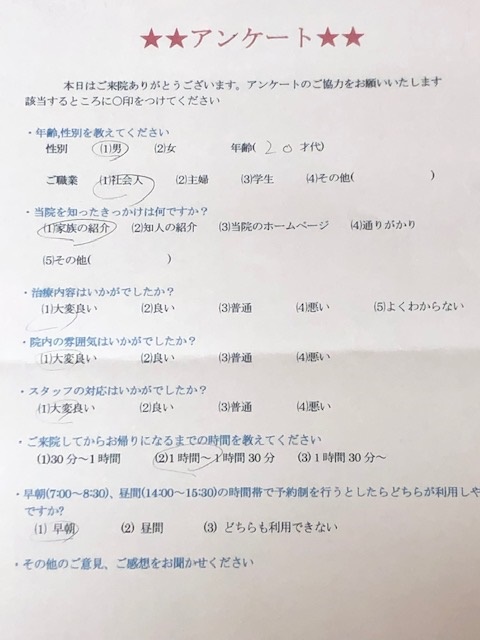 ★★アンケート★★
本日はご来院ありがとうございます。アンケートのご協力をお願いいたします
該当するところに〇印をつけてください
・年齢,性別を教えてください
性別 (1)男 (2)女 年齢( 20 才代)
ご職業 (1)社会人 (2)主婦 (3)学生 (4)その他( )
・当院を知ったきっかけは何ですか?
(1)家族の紹介 (2)知人の紹介 (3)当院のホームページ (4)通りがかり
(5)その他( )
・治療内容はいかがでしたか?
(1)大変良い (2)良い (3)普通 (4)悪い (5)よくわからない
・院内の雰囲気はいかがでしたか?
(1)大変良い (2)良い (3)普通 (4)悪い
・スタッフの対応はいかがでしたか?
(1)大変良い (2)良い (3)普通 (4)悪い
・ご来院してからお帰りになるまでの時間を教えてください
(1)30分～1時間 (2)1時間～1時間30分 (3)1時間30分～
・早朝(7:00～8:30)、昼間(14:00～15:30)の時間帯で予約制を行うとしたらどちらが利用しや
ですか?
(1) 早朝 (2) 昼間 (3) どちらも利用できない
・その他のご意見、ご感想をお聞かせください